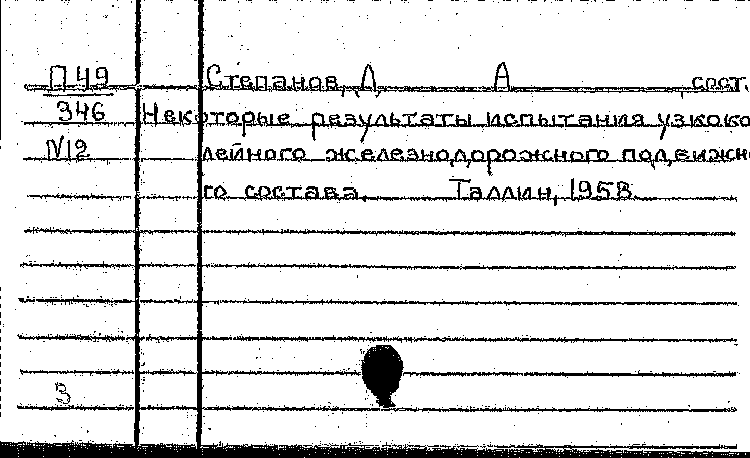 П 49 Степанов, Л А сост.
946 Некоторые результаты испытания узкоко
N12 лейного железнодорожного подвижно
го состава. Таллин, 1958.
3